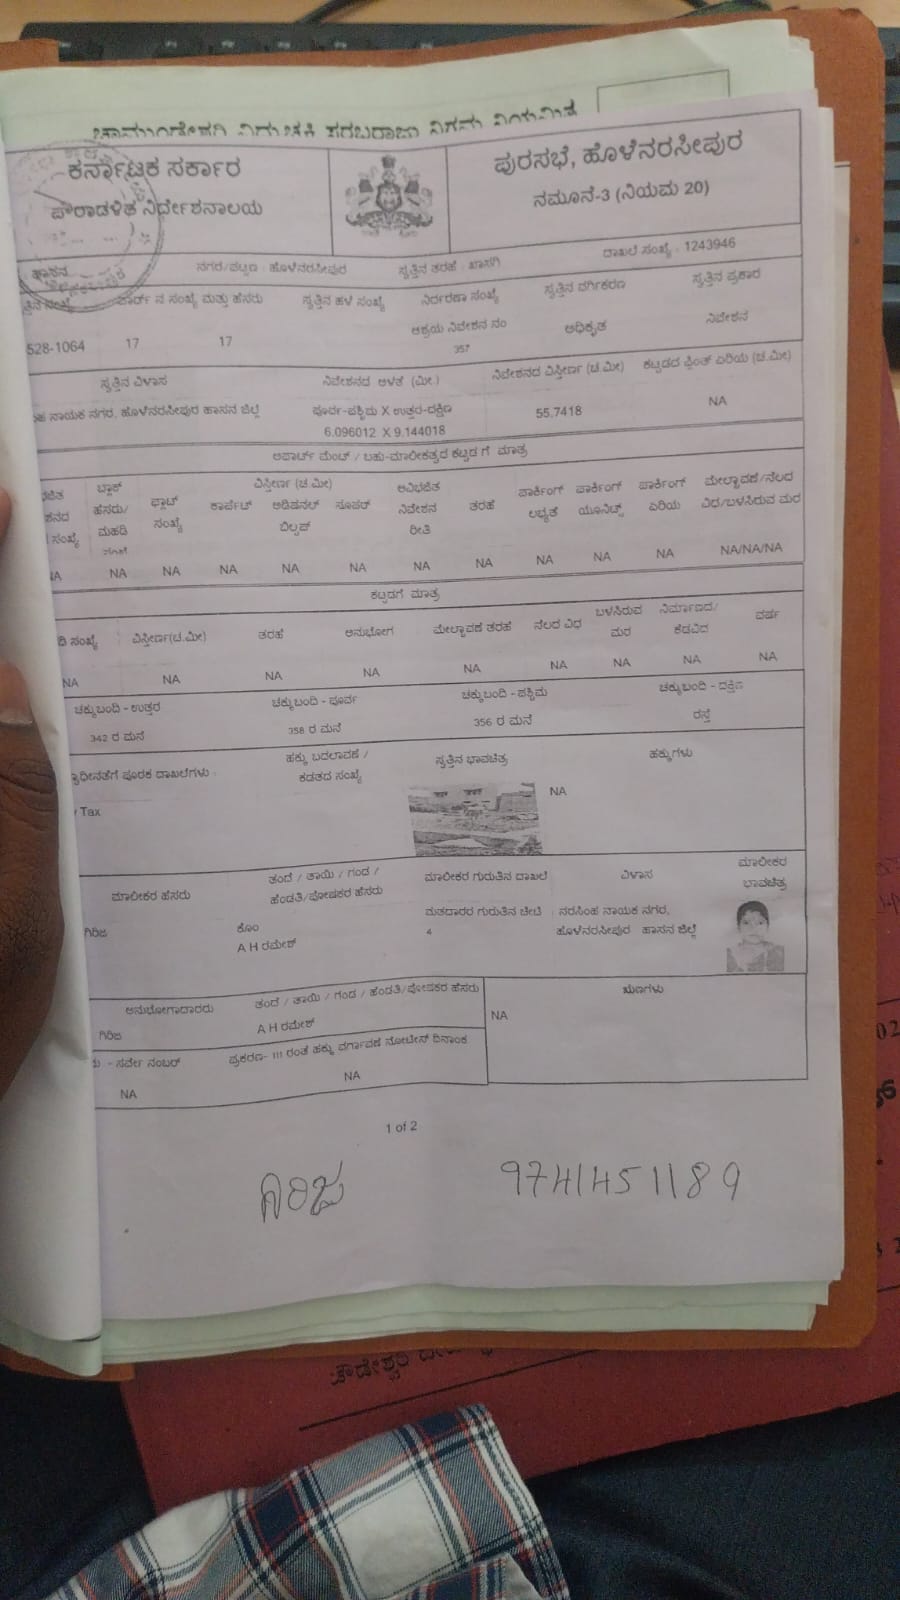 ಕರ್ನಾಟಕ ಸರ್ಕಾರ
ಪೌರಾಡಳಿತ ನಿರ್ದೇಶನಾಲಯ
ಪುರಸಭೆ, ಹೊಳೆನರಸೀಪುರ
ನಮೂನೆ-3 (ನಿಯಮ 20)
ಹಾಸನ ನಗರ/ಪಟ್ಟಣ : ಹೊಳೆನರಸೀಪುರ ಸ್ವತ್ತಿನ ತರಹೆ : ಖಾಸಗಿ ದಾಖಲೆ ಸಂಖ್ಯೆ : 1243946
ವಾರ್ಡ್ ನ ಸಂಖ್ಯೆ ಮತ್ತು ಹೆಸರು ಸ್ವತ್ತಿನ ಹಳೆ ಸಂಖ್ಯೆ ನಿರ್ಧರಣಾ ಸಂಖ್ಯೆ ಸ್ವತ್ತಿನ ವರ್ಗೀಕರಣ ಸ್ವತ್ತಿನ ಪ್ರಕಾರ
528-1064 17 17 ಆಶ್ರಯ ನಿವೇಶನ ನಂ 357 ಅಧಿಕೃತ ನಿವೇಶನ
ಸ್ವತ್ತಿನ ವಿಳಾಸ ನಿವೇಶನದ ಅಳತೆ (ಮೀ.) ನಿವೇಶನದ ವಿಸ್ತೀರ್ಣ (ಚ.ಮೀ) ಕಟ್ಟಡದ ಪ್ಲಿಂತ್ ಏರಿಯ (ಚ.ಮೀ)
ನಾಯಕ ನಗರ, ಹೊಳೆನರಸೀಪುರ ಹಾಸನ ಜಿಲ್ಲೆ ಪೂರ್ವ-ಪಶ್ಚಿಮ X ಉತ್ತರ-ದಕ್ಷಿಣ 55.7418 NA
6.096012 X 9.144018
ಅಪಾರ್ಟ್ ಮೆಂಟ್ / ಬಹು-ಮಾಲೀಕತ್ವದ ಕಟ್ಟಡಗೆ ಮಾತ್ರ
ಬ್ಲಾಕ್ ಹೆಸರು/ ಮಹಡಿ ಫ್ಲಾಟ್ ಸಂಖ್ಯೆ ವಿಸ್ತೀರ್ಣ (ಚ.ಮೀ) ಕಾರ್ಪೆಟ್ ಅಡಿಷನಲ್ ಬಿಲ್ಟಪ್ ಸೂಪರ್ ಅವಿಭಜಿತ ನಿವೇಶನ ರೀತಿ ತರಹೆ ಪಾರ್ಕಿಂಗ್ ಲಭ್ಯತೆ ಪಾರ್ಕಿಂಗ್ ಯೂನಿಟ್ಸ್ ಪಾರ್ಕಿಂಗ್ ಏರಿಯ ಮೇಲ್ಛಾವಣೆ/ನೆಲದ ವಿಧ/ಬಳಸಿರುವ ಮರ
NA NA NA NA NA NA NA NA NA NA NA/NA/NA
ಕಟ್ಟಡಗೆ ಮಾತ್ರ
ಸಂಖ್ಯೆ ವಿಸ್ತೀರ್ಣ(ಚ.ಮೀ) ತರಹೆ ಅನುಭೋಗ ಮೇಲ್ಛಾವಣೆ ತರಹೆ ನೆಲದ ವಿಧ ಬಳಸಿರುವ ಮರ ನಿರ್ಮಾಣದ/ ಕೆಡವಿದ ವರ್ಷ
NA NA NA NA NA NA NA NA NA
ಚಕ್ಕುಬಂದಿ - ಉತ್ತರ ಚಕ್ಕುಬಂದಿ - ಪೂರ್ವ ಚಕ್ಕುಬಂದಿ - ಪಶ್ಚಿಮ ಚಕ್ಕುಬಂದಿ - ದಕ್ಷಿಣ
342 ರ ಮನೆ 358 ರ ಮನೆ 356 ರ ಮನೆ ರಸ್ತೆ
ಪೂರಕ ದಾಖಲೆಗಳು : ಹಕ್ಕು ಬದಲಾವಣೆ / ಕಡತದ ಸಂಖ್ಯೆ ಸ್ವತ್ತಿನ ಭಾವಚಿತ್ರ ಹಕ್ಕುಗಳು
Tax NA
ಮಾಲೀಕರ ಹೆಸರು ತಂದೆ / ತಾಯಿ / ಗಂಡ / ಹೆಂಡತಿ/ಪೋಷಕರ ಹೆಸರು ಮಾಲೀಕರ ಗುರುತಿನ ದಾಖಲೆ ವಿಳಾಸ ಮಾಲೀಕರ ಭಾವಚಿತ್ರ
ಗಿರಿಜ ಕೊಂ ಮತದಾರರ ಗುರುತಿನ ಚೀಟಿ : ನರಸಿಂಹ ನಾಯಕ ನಗರ,
A H ರಮೇಶ್ 4 ಹೊಳೆನರಸೀಪುರ ಹಾಸನ ಜಿಲ್ಲೆ
ಅನುಭೋಗದಾರರು ತಂದೆ / ತಾಯಿ / ಗಂಡ / ಹೆಂಡತಿ/ಪೋಷಕರ ಹೆಸರು ಋಣಗಳು
ಗಿರಿಜ A H ರಮೇಶ್ NA
- ಸರ್ವೇ ನಂಬರ್ ಪ್ರಕರಣ- 111 ರಂತೆ ಹಕ್ಕು ವರ್ಗಾವಣೆ ನೋಟೀಸ್ ದಿನಾಂಕ
NA NA
1 of 2
ಗಿರಿಜ 9741451189